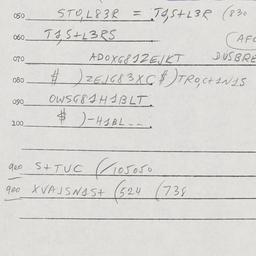 050 STO,L83R = T1,S+L3R (830
060 T1,S+L3RS (AFC
070 ADOXG81ZEJKT DVSBRE
080 $ )ZEJG83XC $)TRQC1+1N1S
090 OWSG81H1BLT.
100 $ )-H1BL--.
900 S+TUC (/105050
900 XVAJSN1S+ (524 (738